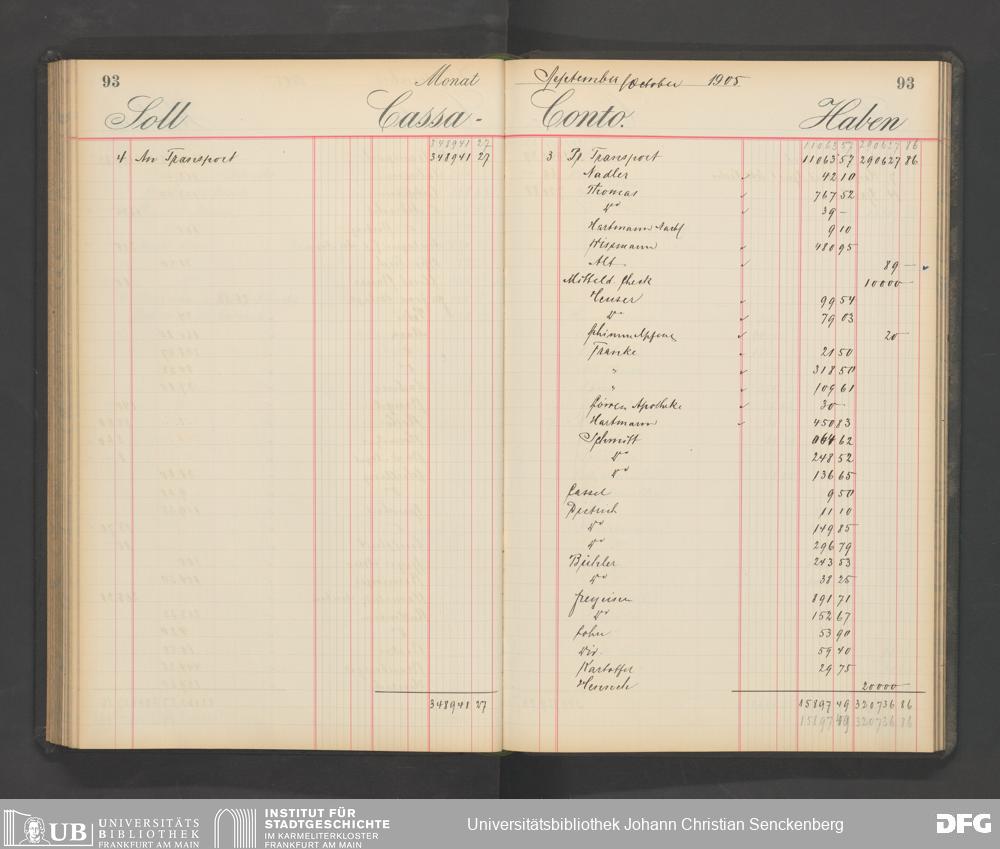 93 Monat
Soll Cassa-
348941 27
4 An Transport 348941 27
348941 27
September / October 1905 93
Conto. Haben
11063 57 290627 86
3 Pr. Transport 11063 57 290627 86
Nadler 42 10
Thomas 767 52
do 39 -
Hartmann Nachf 9 10
480 95
Alt 89 -
Mitteld. Check 10000 -
Heuser 99 54
do 79 03
Schimmelpfeng 20 -
Franke 21 50
" 318 50
" 109 61
Apotheke 30 -
Hartmann 450 83
Schmitt 064 62
do 248 52
do 136 65
Cassel 9 50
Dietrich 11 10
do 149 85
do 296 79
Bühler 243 53
do 38 25
Freyeisen 891 71
do 152 67
Cohn 53 90
Div. 59 40
29 75
20000 -
15897 49 320736 86
15897 49 320736 86
UB UNIVERSITÄTS
BIBLIOTHEK
FRANKFURT AM MAIN
INSTITUT FÜR
STADTGESCHICHTE
IM KARMELITERKLOSTER
FRANKFURT AM MAIN
Universitätsbibliothek Johann Christian Senckenberg
DFG